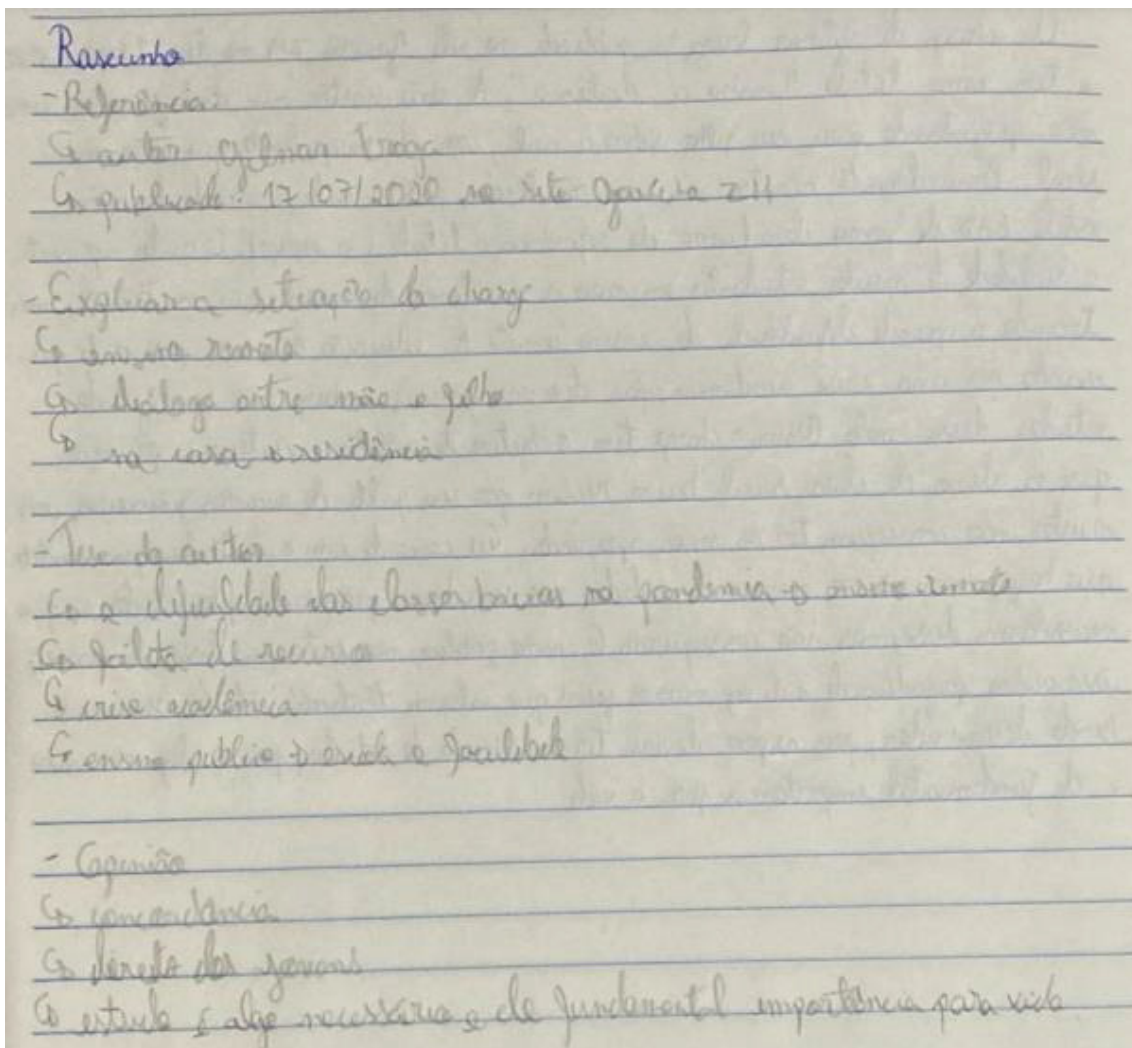 Rascunho
- Referência
↳ autor Gilmar Fraga
↳ publicado: 17/07/2020 no site Gaúcha ZH
- Explicar a situação da charge
↳ ensino remoto
↳ diálogo entre mãe e filho
↳ na casa → residência
- Tese do autor
↳ a dificuldade das classes baixas na pandemia → ensino remoto
↳ falta de recursos
↳ crise acadêmica
↳ ensino público → escola e faculdade
- Opinião
↳ concordância
↳ direito dos jovens
↳ estudo é algo necessário e de fundamental importância para vida